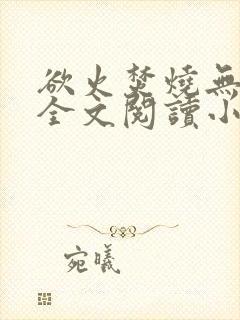 欲火焚燒無
全文閱讀小
宛曦